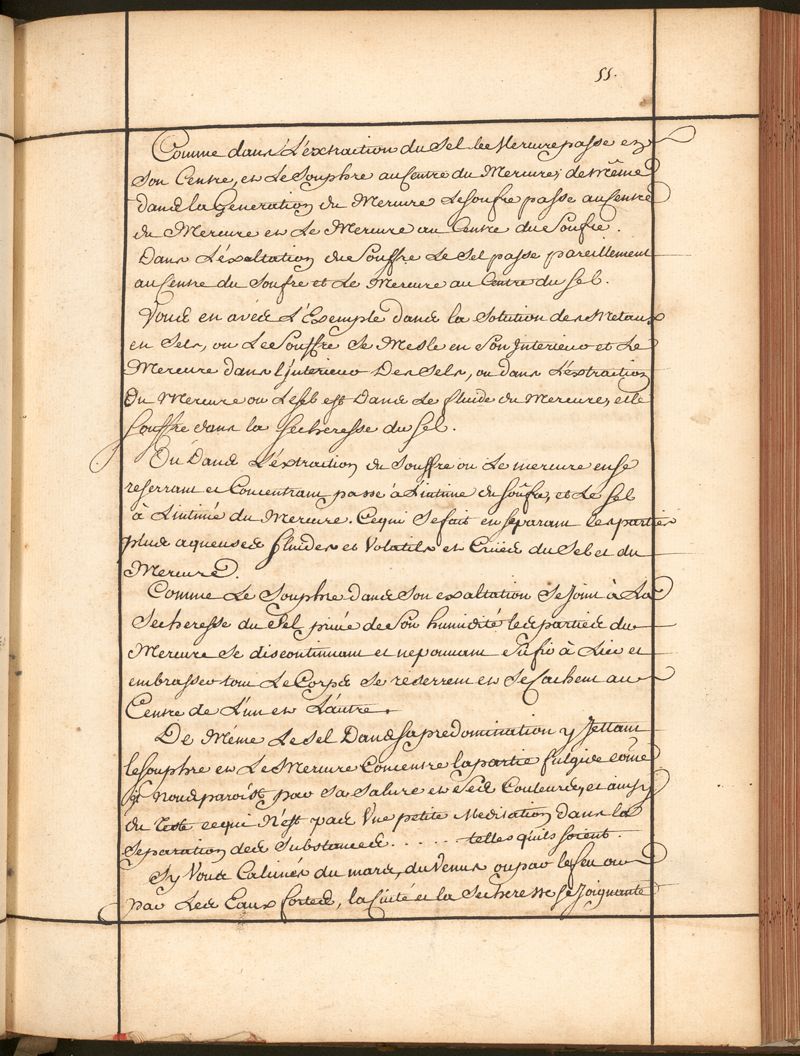 55.
Comme dans L'extraction du Sel le Mercure passe en
Son Centre, et Le Souphre au Centre du Mercure, de Même
dans la Generation du Mercure Le Soufre passe au Centre
du Mercure et Le Mercure au Centre du Soufre.
Dans L'exaltation du Souffre Le Sel passe pareillement
au Centre du Soufre et Le Mercure au Centre du Sel.
Vous en avéés L'Exemple dans la Solution des Metaux
en Sels, ou Le Souffre Se Mesle en Son Interieur et Le
Mercure dans l'Interieur Des Sels, ou dans L'extraction
Du Mercure ou Le sel est Dans Le fluide du Mercure, et le
Souffre dans la secheresse du Sel.
Ou Dans L'extraction du Souffre ou Le mercure en se
reserrant et Concentrant passe à L'intime du soufre, et Le Sel
à L'intimé du Mercure. Ce qui Se fait en separant les parties
plus aqueuses fluides et Volatils et Cruës du Sel et du
Mercure.
Comme Le Souphre dans Son exaltation Se Joint à La
Secheresse du Sel privé de Son humidité les parties du
Mercure Se discontinuant et ne pouvant à Lier et
embrasser tout Le Corps Se reserrent et Se Cachent au
Centre de L'un et L'autre.
De Même Le Sel Dans sa predomination y Jettant
le Souphre et Le Mercure Concentre la partie fulgide côme
Il Nous paroist par Sa Salure et Ses Couleurs, et ainsy
du reste ce qui N'est pas Une petite Meditation dans la
Separation des Substances . . . . . telles quils soient.
Sy Vous Calcinés du mars, du Venus ou par le feu ou
par Les Eaux fortes, la et la Secheresse se Joignante